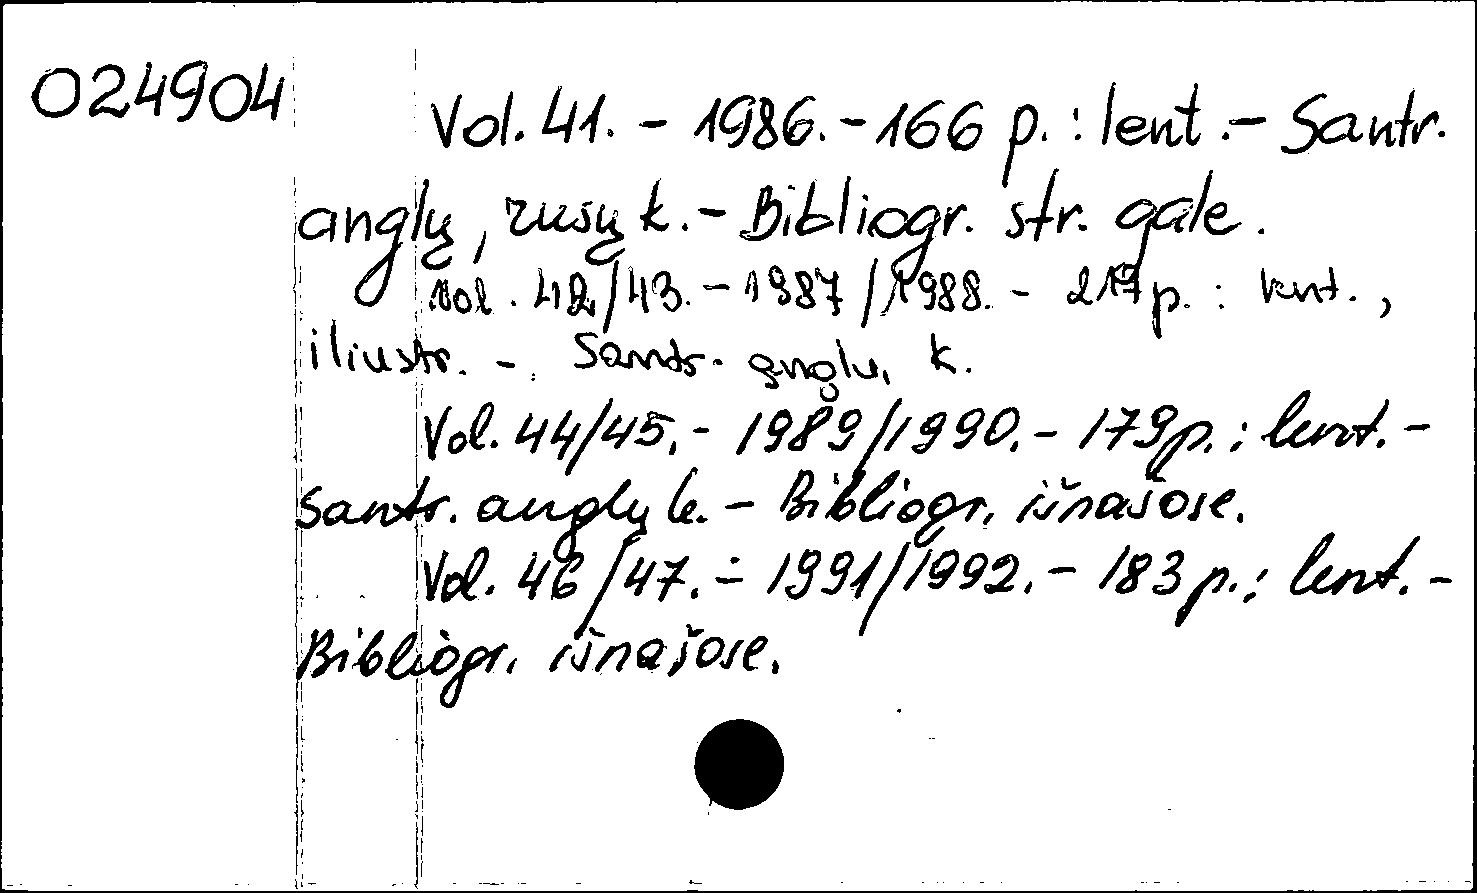 024904
Vol. 41. – 1986. – 166 p. : lent. – Santr.
anglų, rusų k. – Bibliogr. str. gale.
Vol. 42/43. – 1987/1988. – 217 p. : lent.,
iliustr. – Santr. anglų k.
Vol. 44/45. – 1989/1990. – 179 p. : lent. –
Santr. anglų k. – Bibliogr. išnašose.
Vol. 46/47. – 1991/1992. – 183 p. : lent. –
Bibliogr. išnašose.